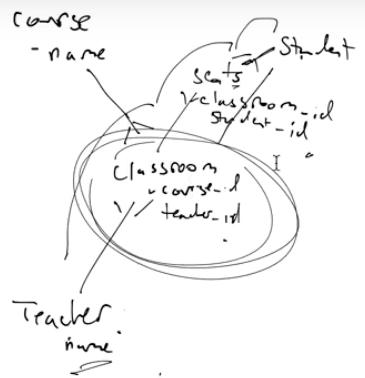 course
- name
Student
seats
classroom_id
student_id
classroom
course_id
teacher_id
Teacher
name